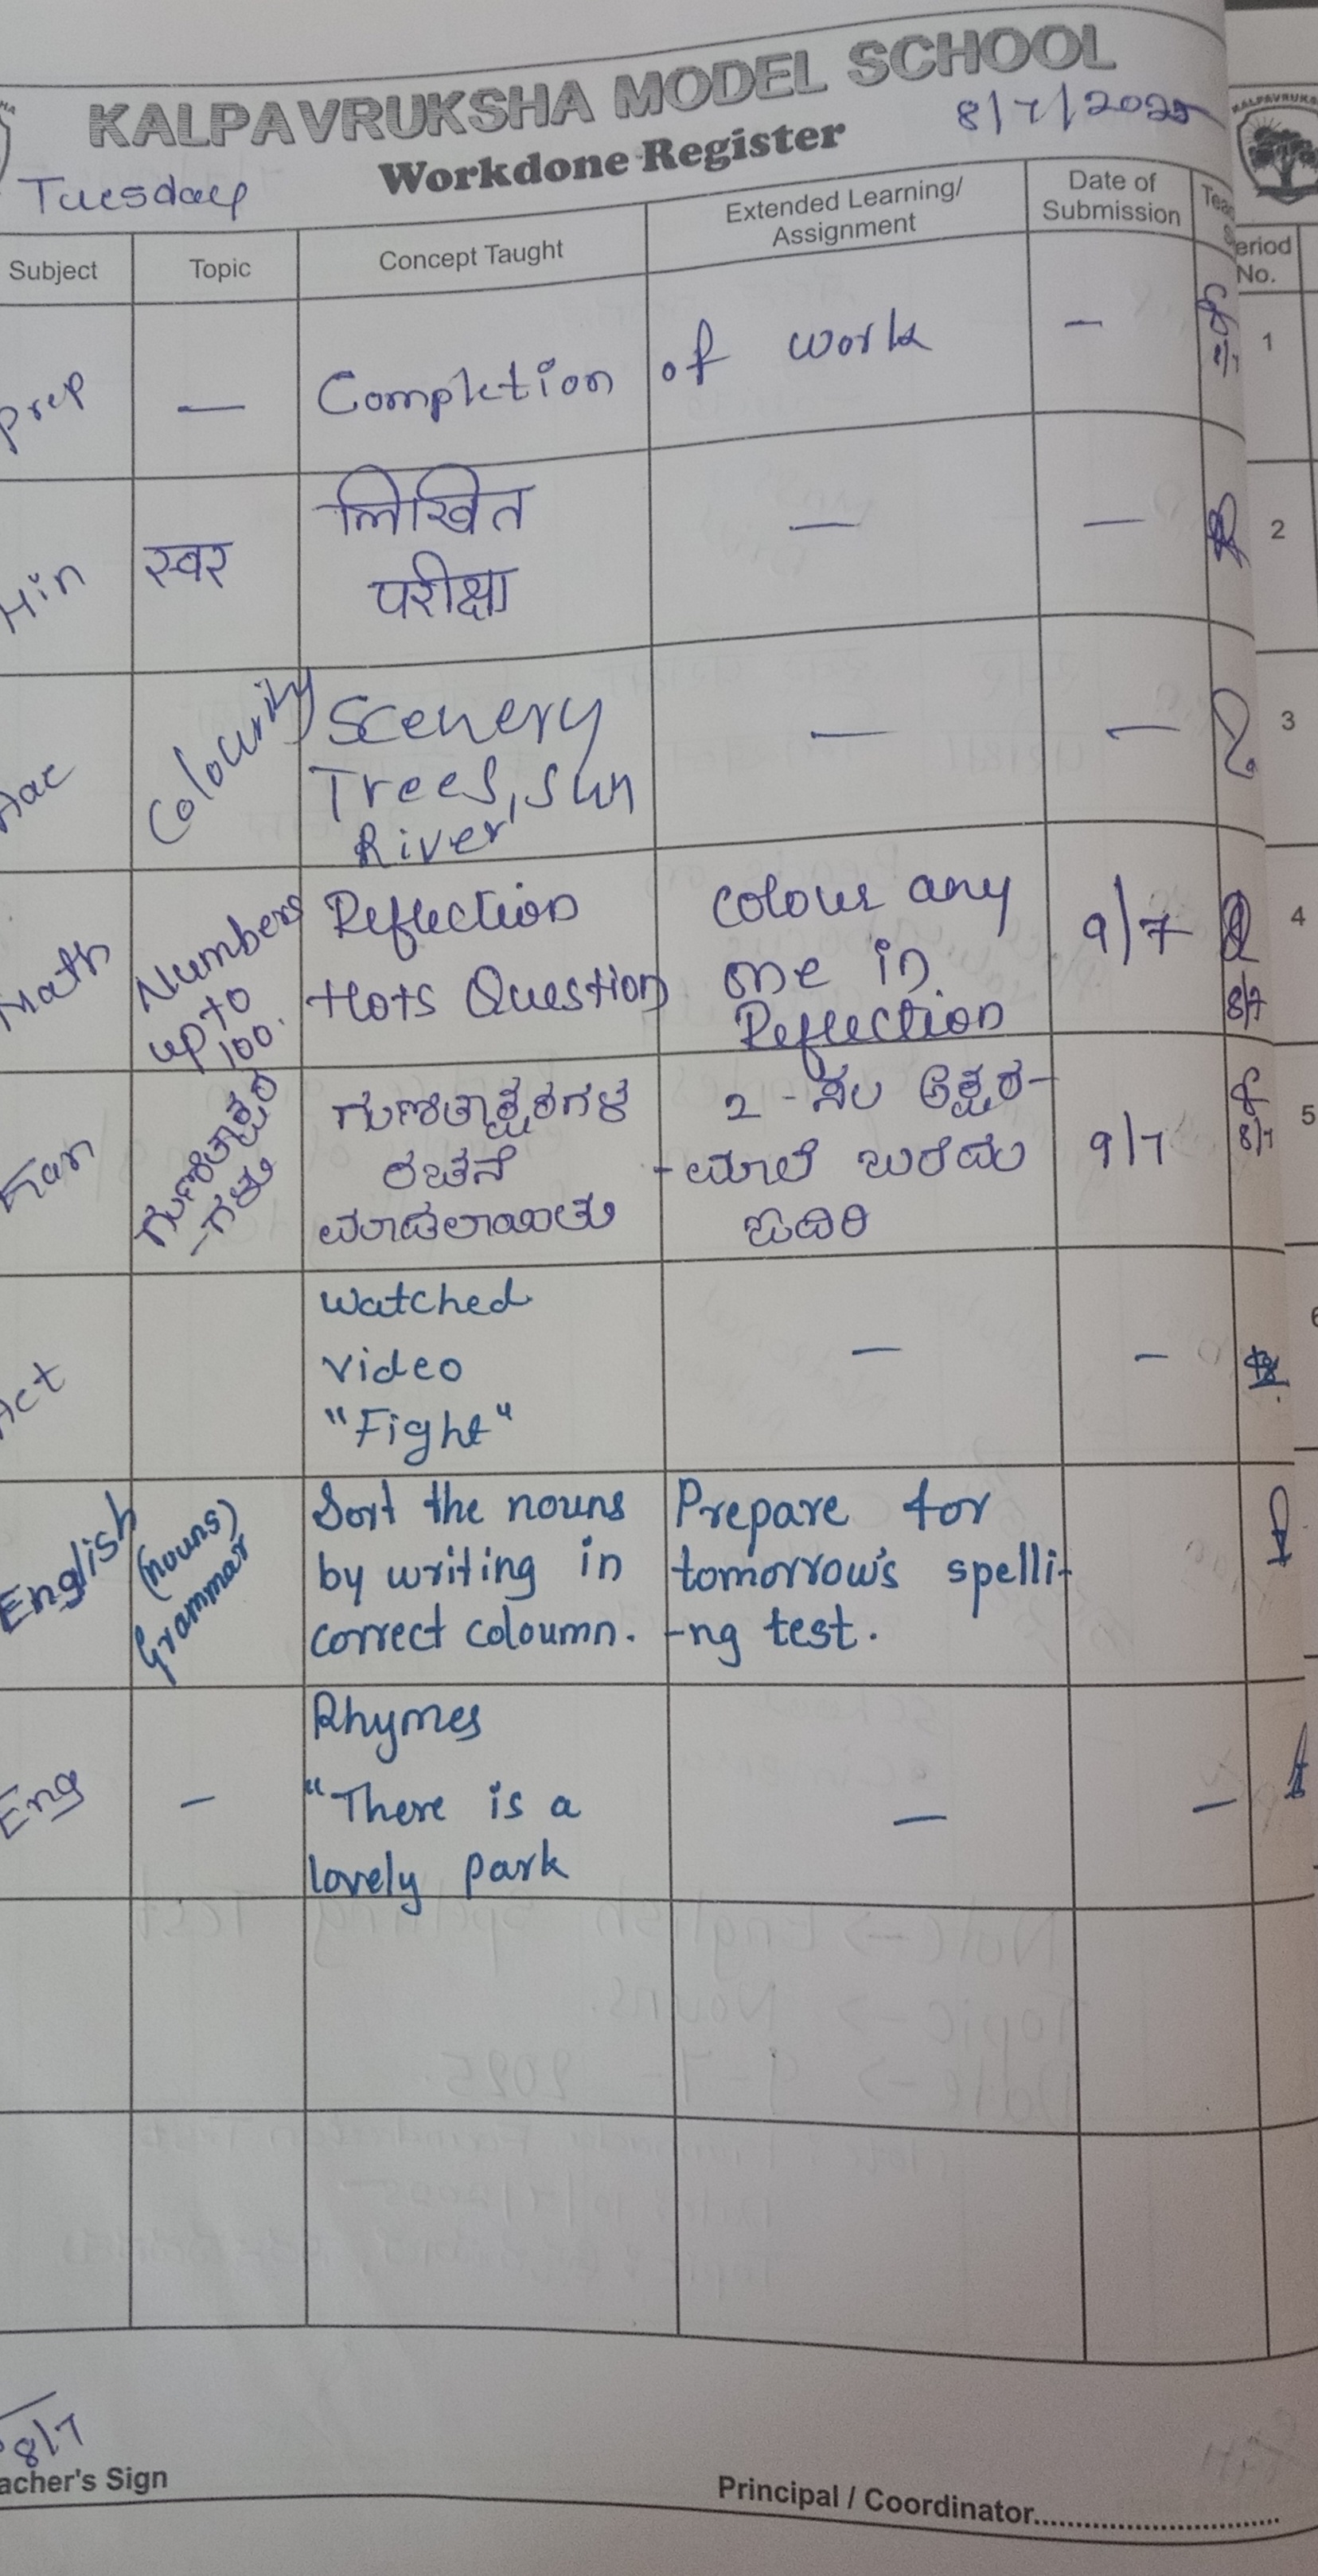 KALPAVRUKSHA MODEL SCHOOL
8/7/2025
Workdone Register
Tuesday
Subject Topic Concept Taught Extended Learning/ Assignment Date of Submission
Period No.
prep — Completion of work —
1
Hin स्वर लिखित — —
परीक्षा
2
Colouring Scenery — —
Trees, Sun
River
3
Math Numbers Reflection colour any 9/7
up to Hots Question one in
100. Reflection
8/7
4
Kan ಗುಣಿತಾಕ್ಷರ ಗುಣಿತಾಕ್ಷರಗಳ 2 - ಸಲ ಅಕ್ಷರ-
-ಗಳು ರಚನೆ -ಮಾಲೆ ಬರೆದು 9/7
ಮಾಡಲಾಯಿತು ಓದಿರಿ
8/7
5
Act watched — —
video
"Fight"
English (nouns) Sort the nouns Prepare for
Grammar by writing in tomorrow's spelli-
correct coloumn. -ng test.
Eng — Rhymes — —
"There is a
lovely park
8/7
acher's Sign
Principal / Coordinator